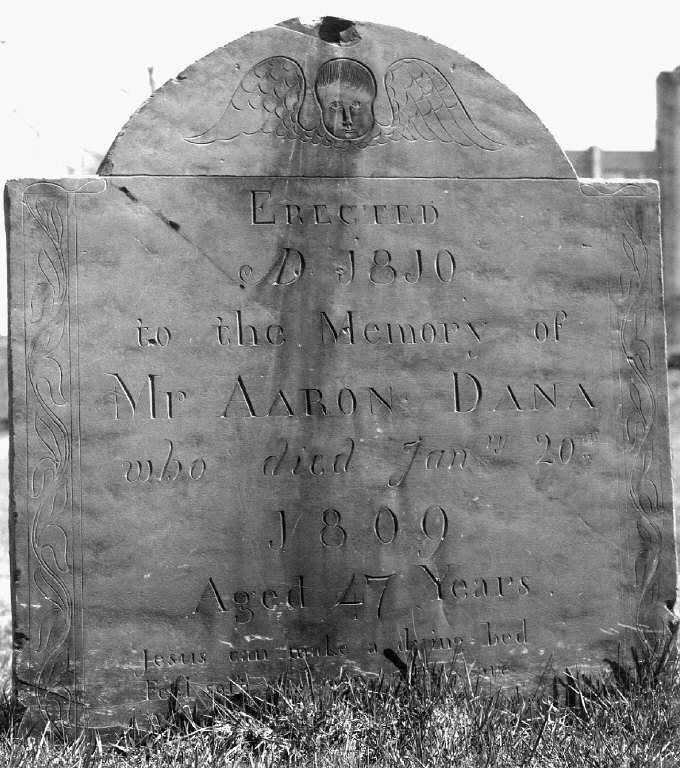 ERECTED
AD 1810
to the Memory of
Mr AARON DANA
who died Janry 20
1809
Aged 47 Years.
Jesus can make a dying bed
Feel soft